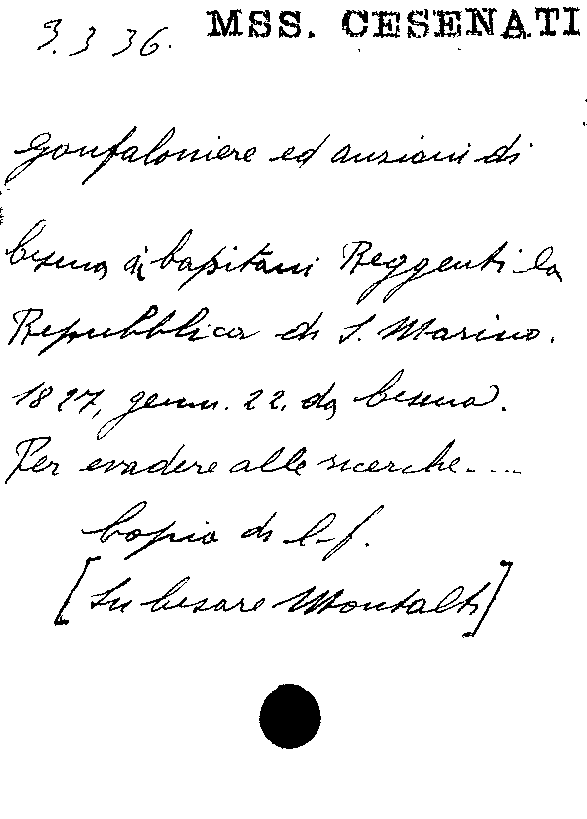 3.3 36. MSS. CESENATI
Gonfaloniere ed anziani di
Cesena ai Capitani Reggenti la
Repubblica di S. Marino.
1827, genn. 22. da Cesena.
Per evadere alle ricerche....
Copia di l-f.
[Su Cesare Montalti]